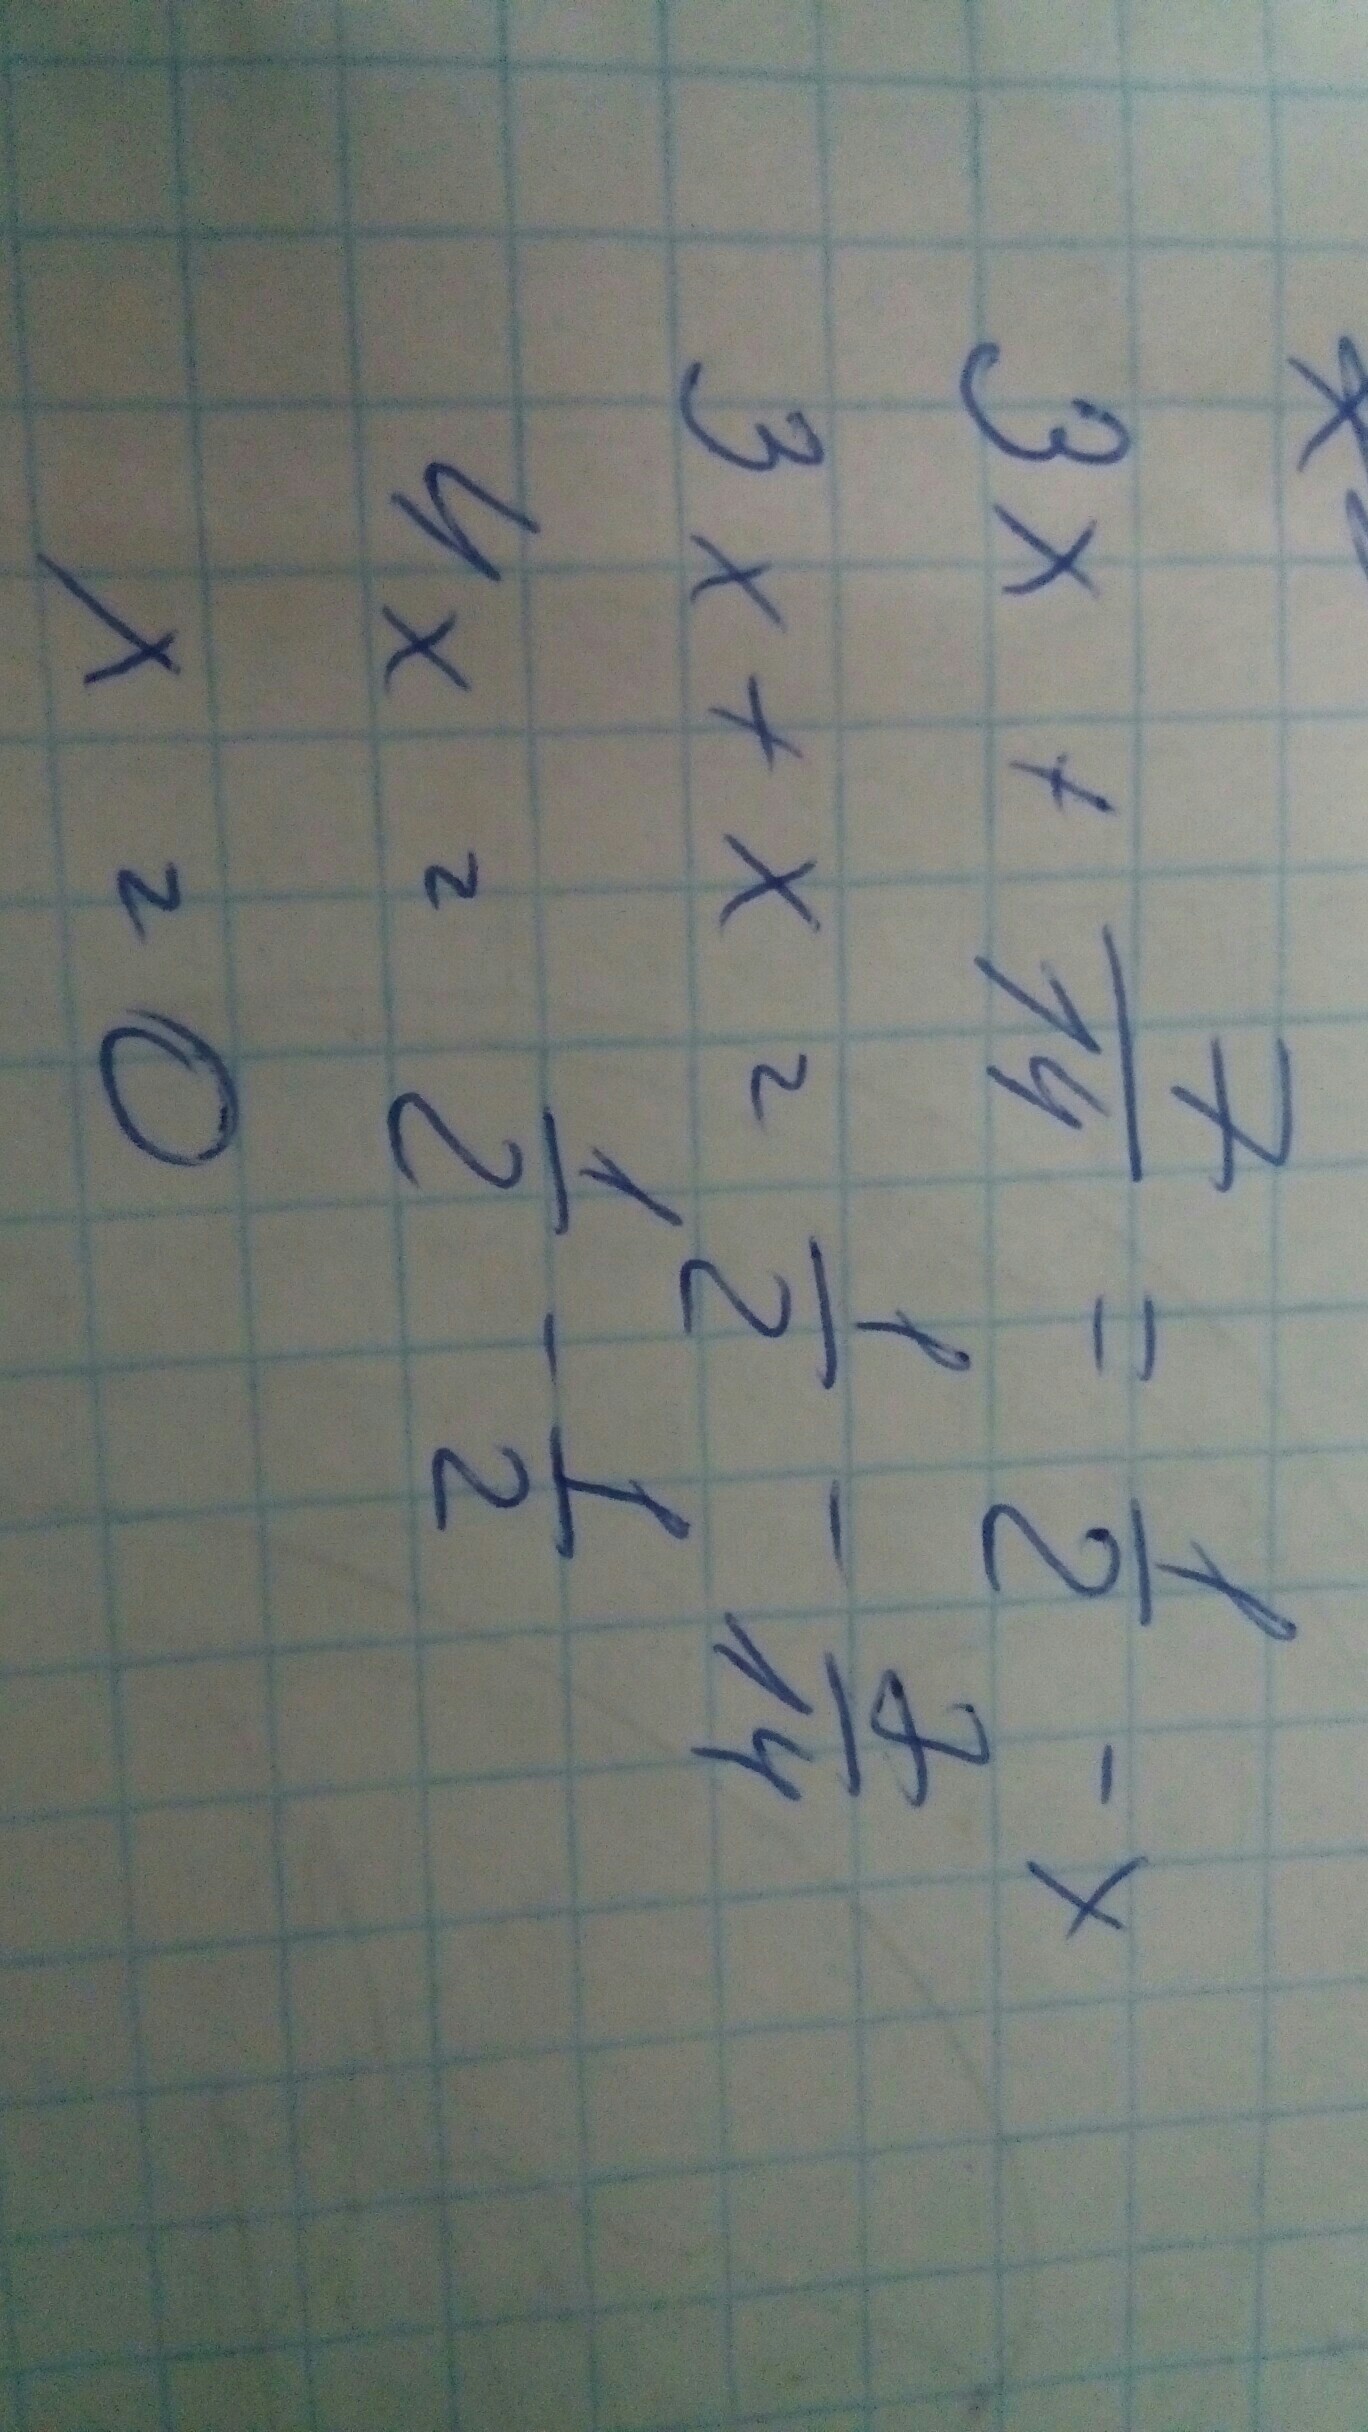 3x + 7/14 = 1/2 - x
3x + x = 1/2 - 7/14
4x = 1/2 - 1/2
x = 0